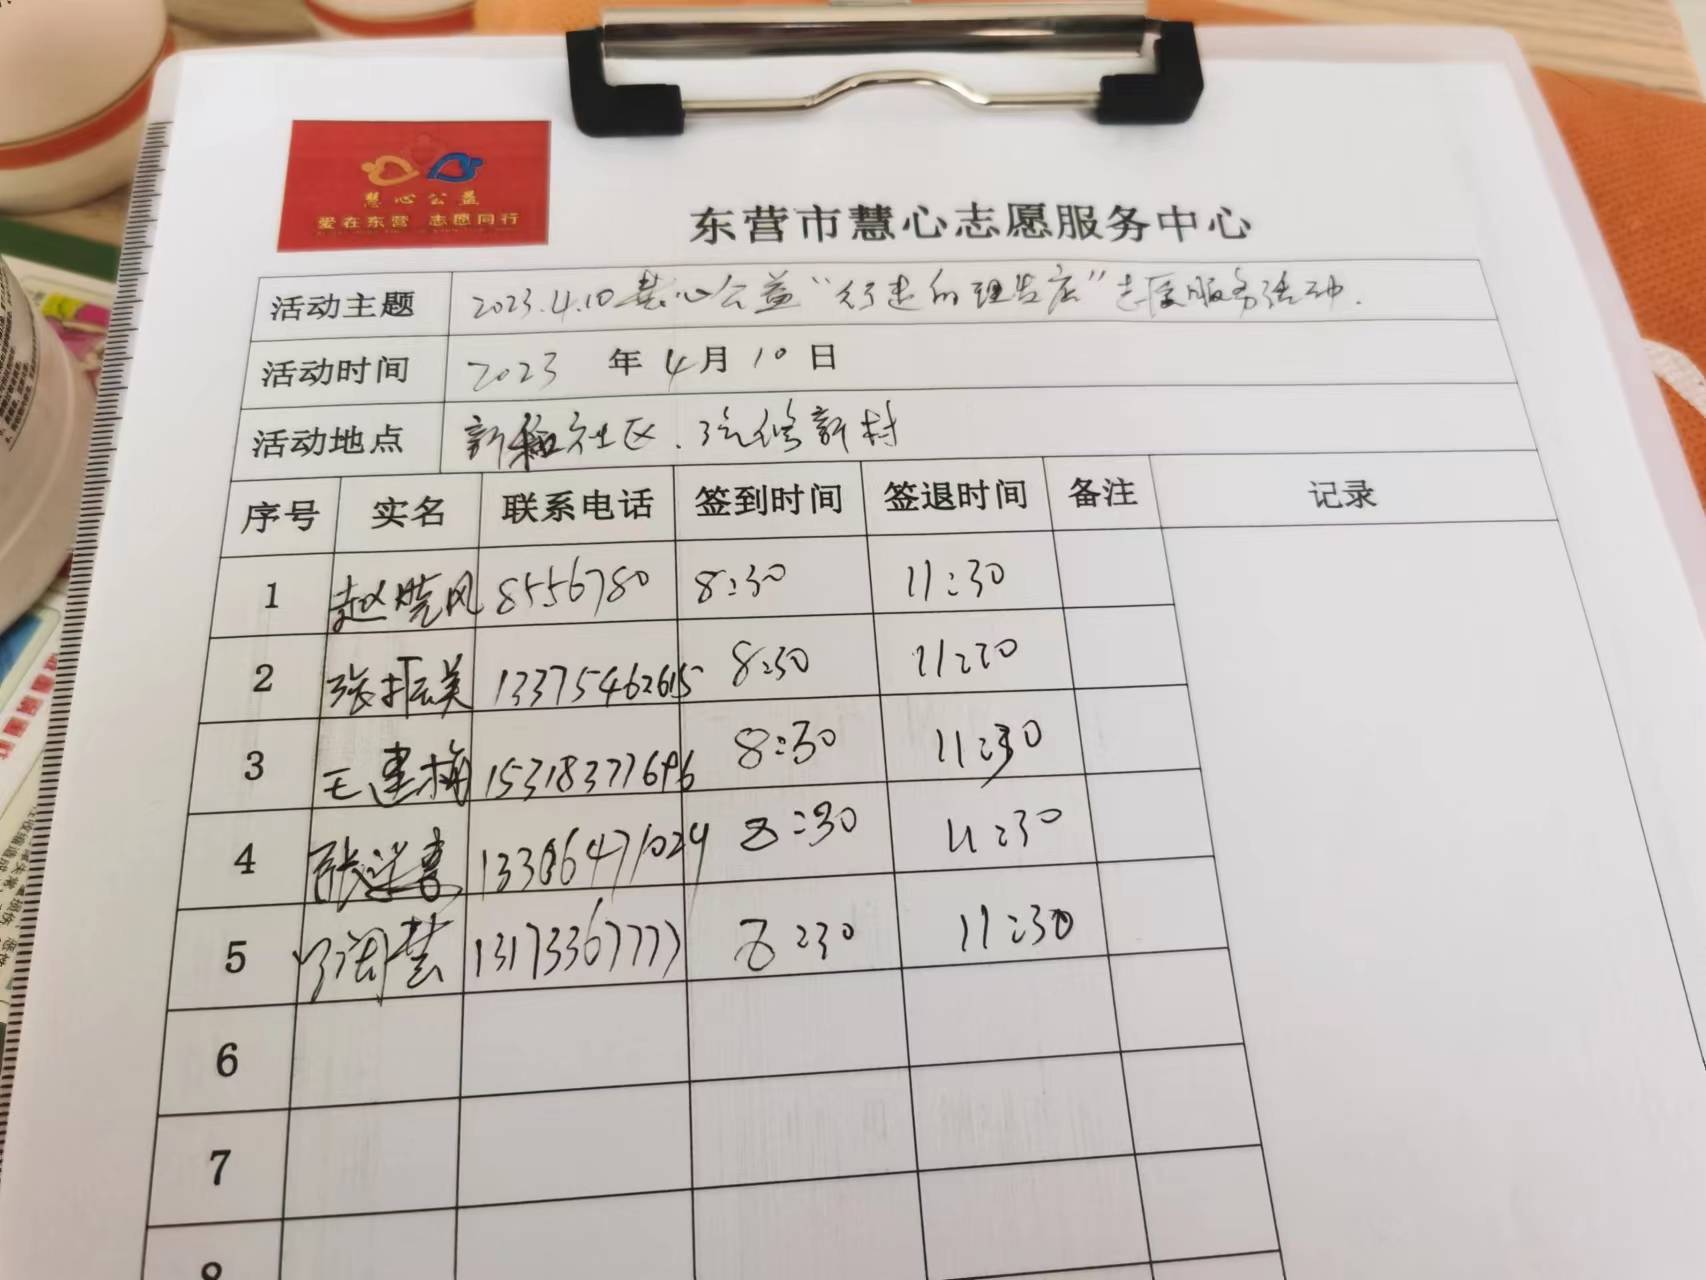 慧心公益
爱在东营 志愿同行
东营市慧心志愿服务中心
活动主题 2023.4.10慧心公益“行走的理发店”志愿服务活动.
活动时间 2023 年 4月 10 日
活动地点 新 社区. 汽修新村
序号 实名 联系电话 签到时间 签退时间 备注 记录
1 赵晓风 8556780 8:30 11:30
2 张振美 13375462615 8:30 11:30
3 王建梅 15318377696 8:30 11:30
4 张 8:30 11:30
5 慧 13173367777 8:30 11:30
6
7
8